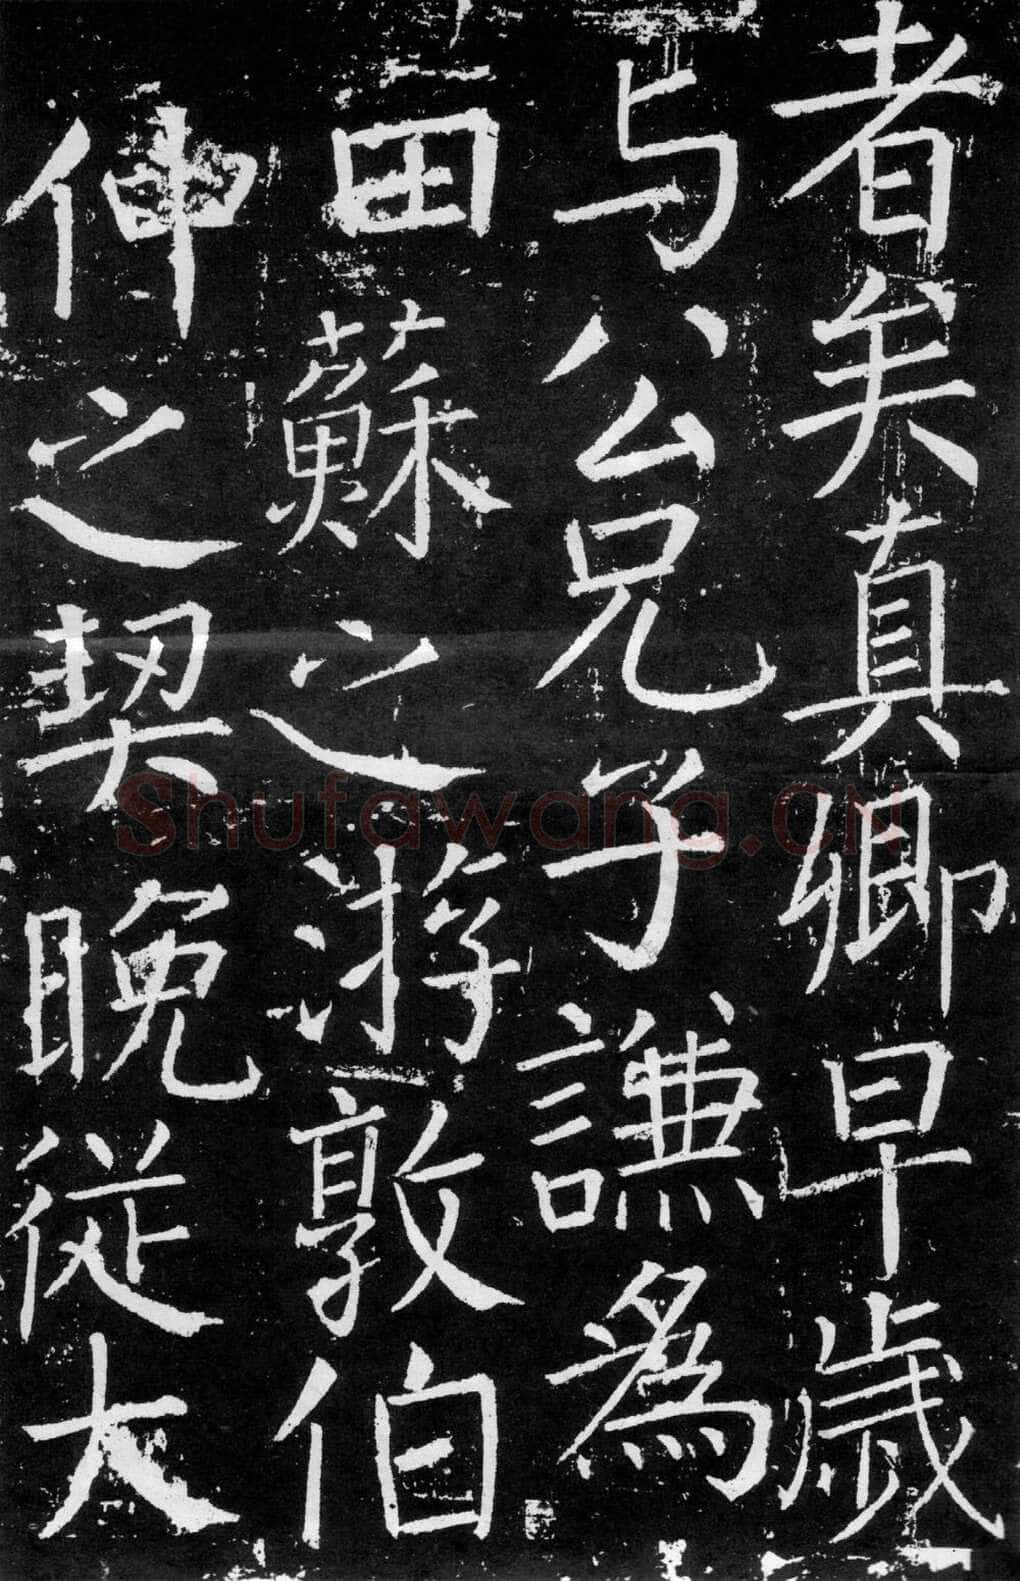 者矣真卿早歲
与公兄子謙為
田蘇之游敦伯
仲之契晚従大
Shufawang.CN